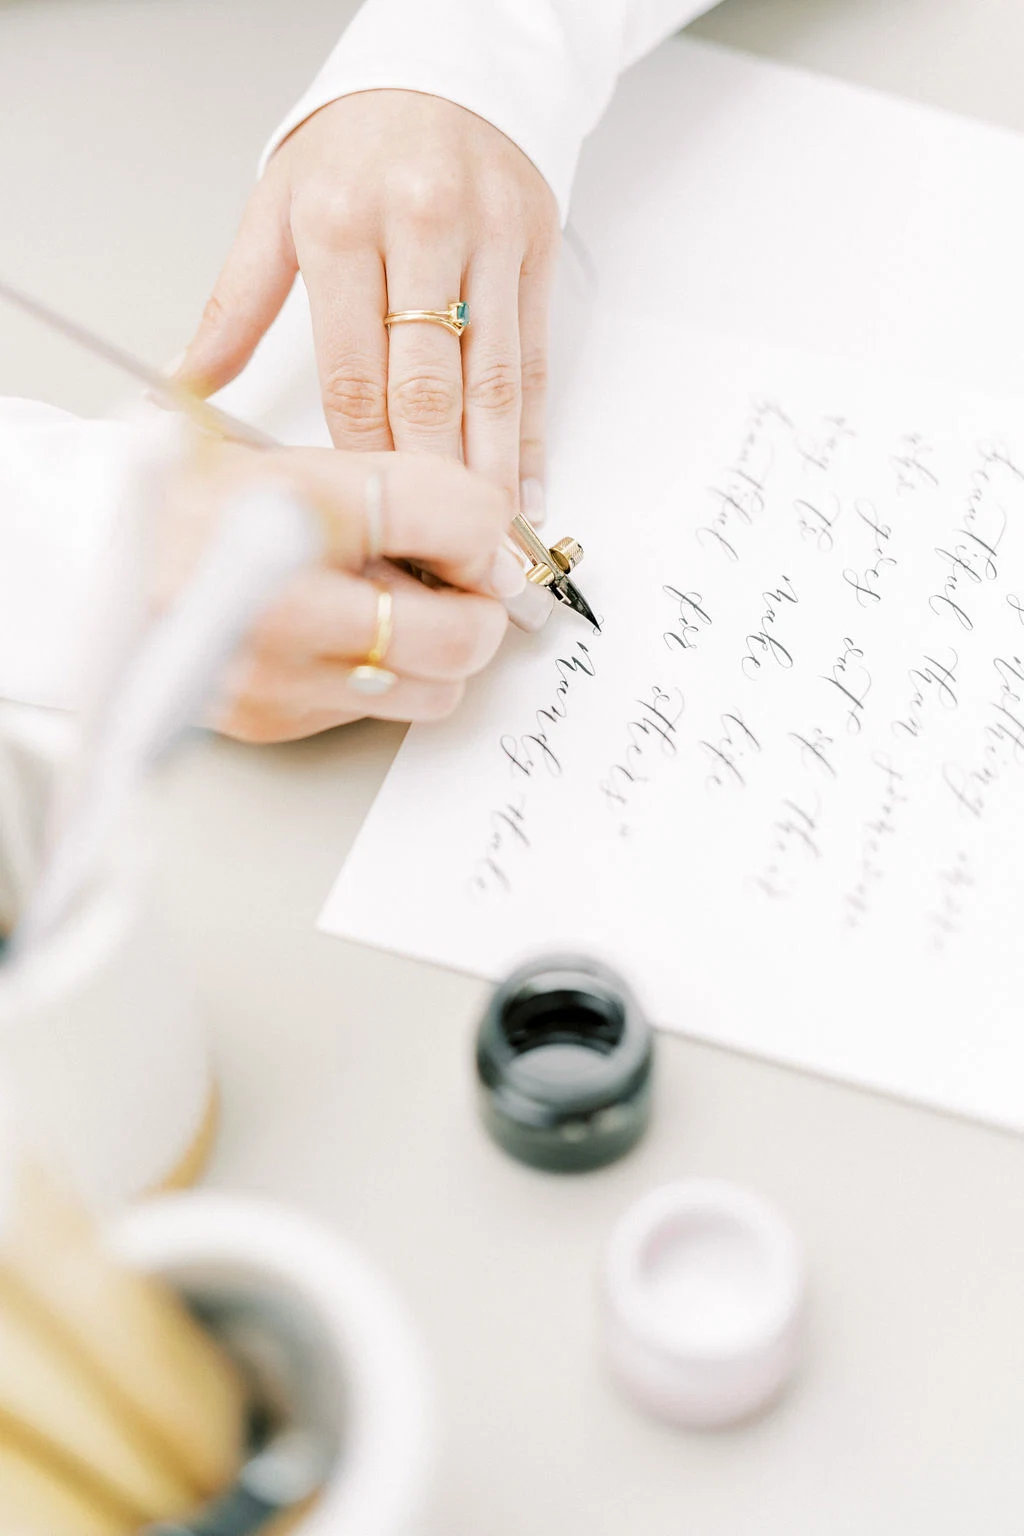 nothing more
beautiful than someone
who goes out of their
way to make life
beautiful for others"
- Mandy Hale